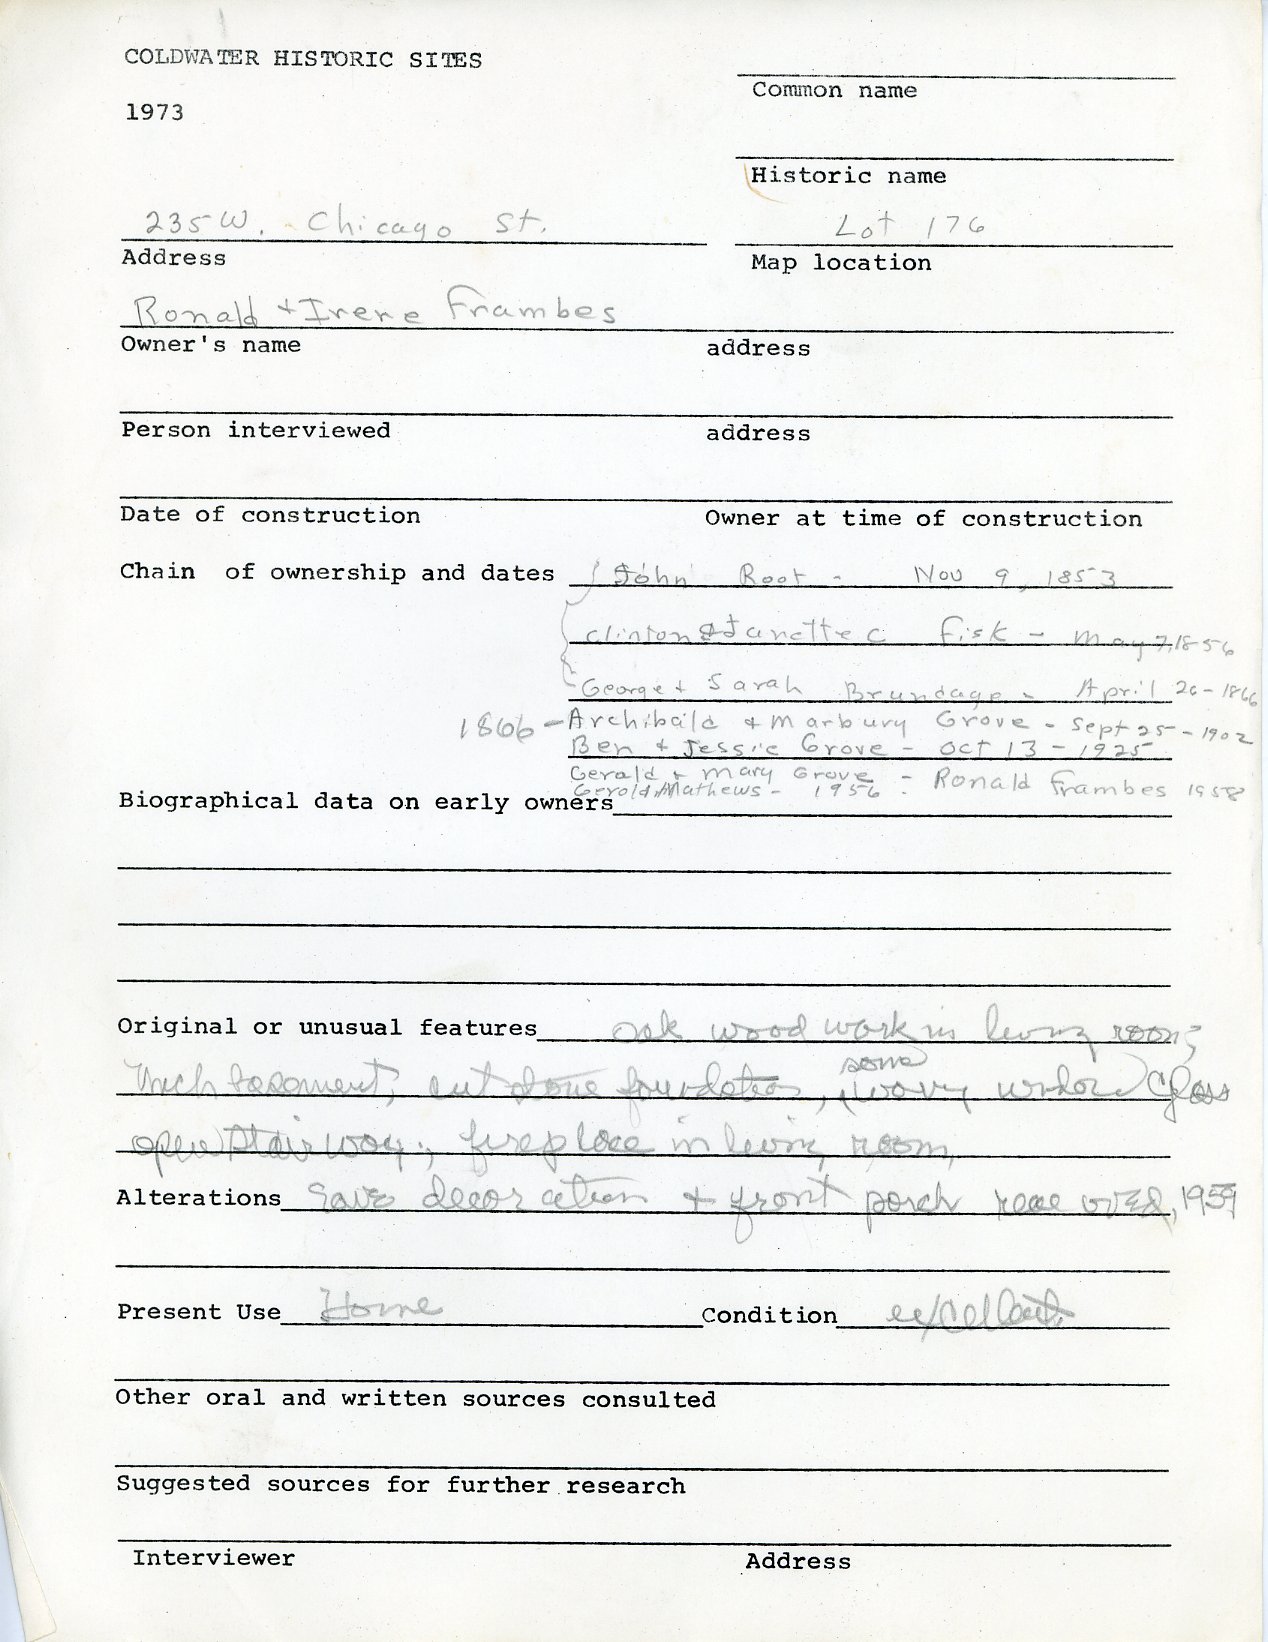 COLDWATER HISTORIC SITES
Common name
1973
Historic name
235 W. Chicago St.
Lot 176
Address
Map location
Ronald + Irene Frambes
Owner's name address
Person interviewed address
Date of construction Owner at time of construction
Chain of ownership and dates John Root - Nov 9, 1853
Clinton & Janette C Fisk - May 7, 1856
George + Sarah Brundage - April 26 - 1866
1866 - Archibald + Marbury Grove - Sept 25 - 1902
Ben + Jessie Grove - Oct 13 - 1925
Gerald + Mary Grove - Ronald Frambes 1958
Gerold Mathews - 1956 -
Biographical data on early owners
Original or unusual features oak wood work in living room;
basement, cut stone foundation, some wavy window glass
open stairway; fireplace in living room
Alterations Eave decoration + front porch removed, 1959
Present Use Home Condition excellent
Other oral and written sources consulted
Suggested sources for further research
Interviewer Address